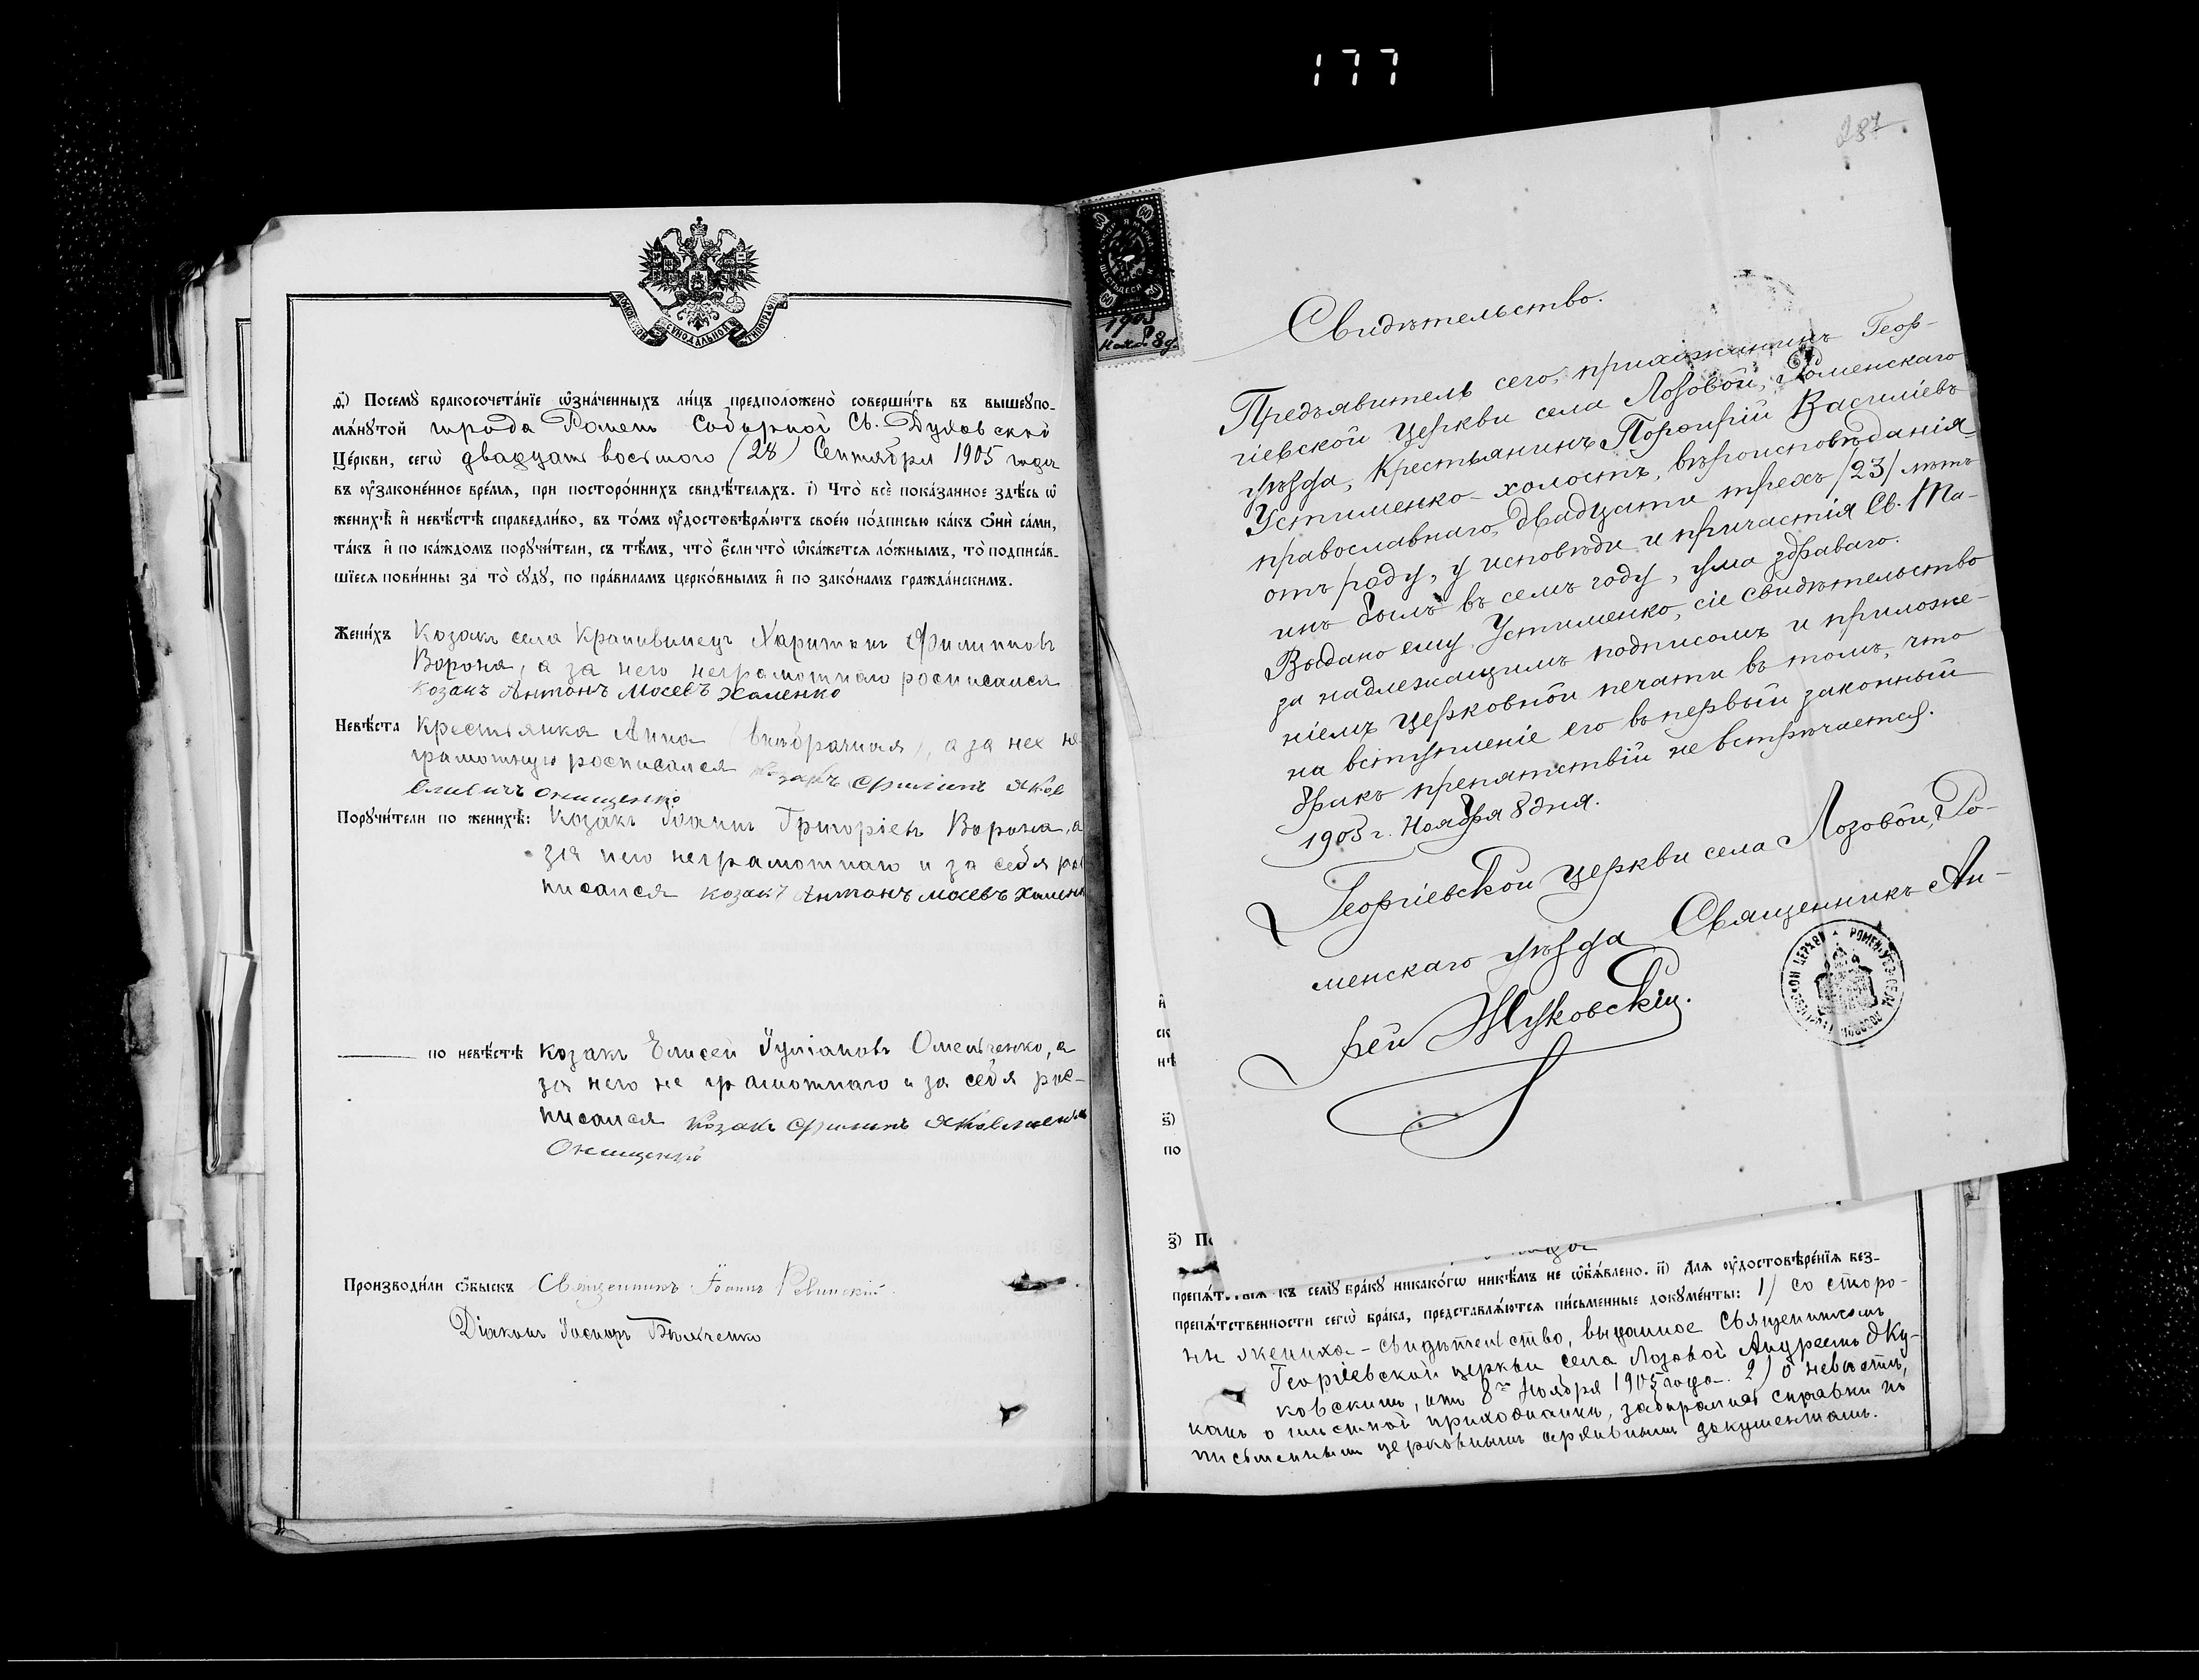 177
287
ѳ҃) Посемꙋ̀ бракосочета́нїе ѡзна́ченныхъ ли́цъ предположено̀ соверши́ть въ вышеꙋпо-
мѧ́нꙋтой города Ромен Соборной Св. Духовской
Це́ркви, сегѡ̀ двадцать восьмого (28) Сентября 1905 года
въ ᲂу҆зако́ненное вре́мѧ, при посторо́ннихъ свидѣ́телѧхъ. і҃) Что̀ всѐ пока́занное здѣ́сь ѡ
женихѣ̀ и҆ невѣ́стѣ справедли́во, въ то́мъ ᲂу҆достовѣрѧ́ютъ свое́ю по́дписью ка́къ ѻ҆нѝ са́ми,
та́къ и҆ по ка́ждомъ порꙋчи́тели, съ тѣ́мъ, что̀ є҆́сли что̀ ѡ҆ка́жется ло́жнымъ, то̀ подписа́в-
шїесѧ пови́нны за то̀ сꙋдꙋ̀, по пра́виламъ церко́внымъ и҆ по зако́намъ гражда́нскимъ.
Жени́хъ Козакъ села Крапивинец Харитон Филиппов
Ворона, а за него неграмотнаго росписался
козакъ Антонъ Мосевъ Хоменко
Невѣ́ста Крестьянка Анна (внебрачная), а за нее не
грамотную росписался козакъ Филипъ Яков
левичъ Онищенко
Порꙋчи́тели по женихѣ̀: Козакъ Іоаннъ Григоріев Ворона, а
за него неграмотнаго и за себя рос
писался козакъ Антонъ Мосевъ Хоменк
по невѣ́стѣ козакъ Елисей Іуліановъ Омельченко, а
за него не грамотнаго и за себя рос-
писался козакъ Филипъ Яковлевичъ
Онищенко
Производи́ли ѻ҆́быскъ Священникъ Іоаннъ
Діаконъ
1905
Нояб. 8 д.
Свидѣтельство.
Предъявитель сего, прихожанинъ Геор-
гіевской церкви села Лозовой, Роменскаго
уѣзда, крестьянинъ Порфирій Василіевъ
Устименко - холостъ, вѣроисповѣданія
православнаго, двадцати трехъ /23/ лѣтъ
отъ роду, у исповѣди и причастія Св. Та-
инъ былъ въ семъ году, ума здраваго.
Выдано ему, Устименко, сіе свидѣтельство
за надлежащимъ подписомъ и приложе-
ніемъ церковной печати въ томъ, что
на вступленіе его въ первый законный
бракъ препятствій не встрѣчается.
1905 г. Ноября 8 дня.
Георгіевской церкви села Лозовой, Ро-
менскаго уѣзда Священникъ Ан-
рей Жуковскій.
й
ск
нѣ
ѕ҃)
по
з҃) По
препѧ́тствїѧ къ семꙋ̀ бра́кꙋ никако́гѡ никѣ́мъ не ѡ҆б̾ѧ́влено. и҃) Длѧ ᲂу҆достовѣре́нїѧ без-
препѧ́тственности сегѡ̀ бра́ка, представлѧ́ютсѧ пи́сьменные докꙋме́нты: 1) со сторо-
ны жениха - свидѣтельство, выданное Священникомъ
Георгіевской церкви села Лозовой Андреемъ Жу-
ковскимъ, отъ 8го Ноября 1905 года. 2) О невѣстѣ,
какъ о мѣстной прихожанкѣ, забирались справки по
письменнымъ церковнымъ архивнымъ документамъ.